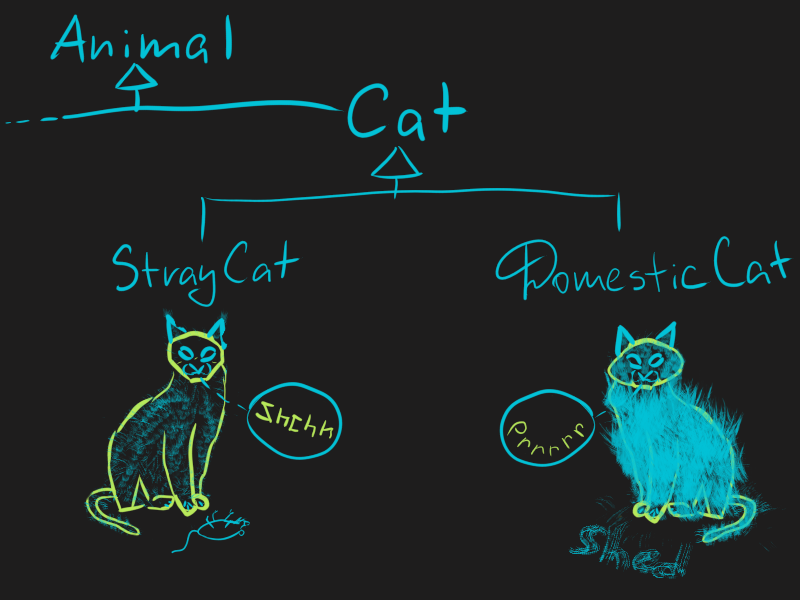 Animal
Cat
StrayCat
DomesticCat
Prrrrr
Shed